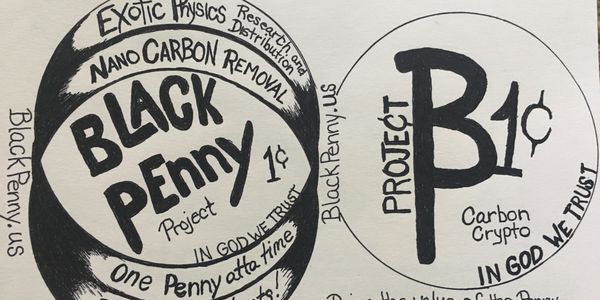 EXOTIC PHYSICS Research and Distribution
NANO CARBON REMOVAL
BLACK
PENNY
1¢
Project
IN GOD WE TRUST
One Penny atta time
BlackPenny.us
BlackPenny.us
PROJE¢T
B1¢
Carbon
Crypto
IN GOD WE TRUST
the value of the Penny